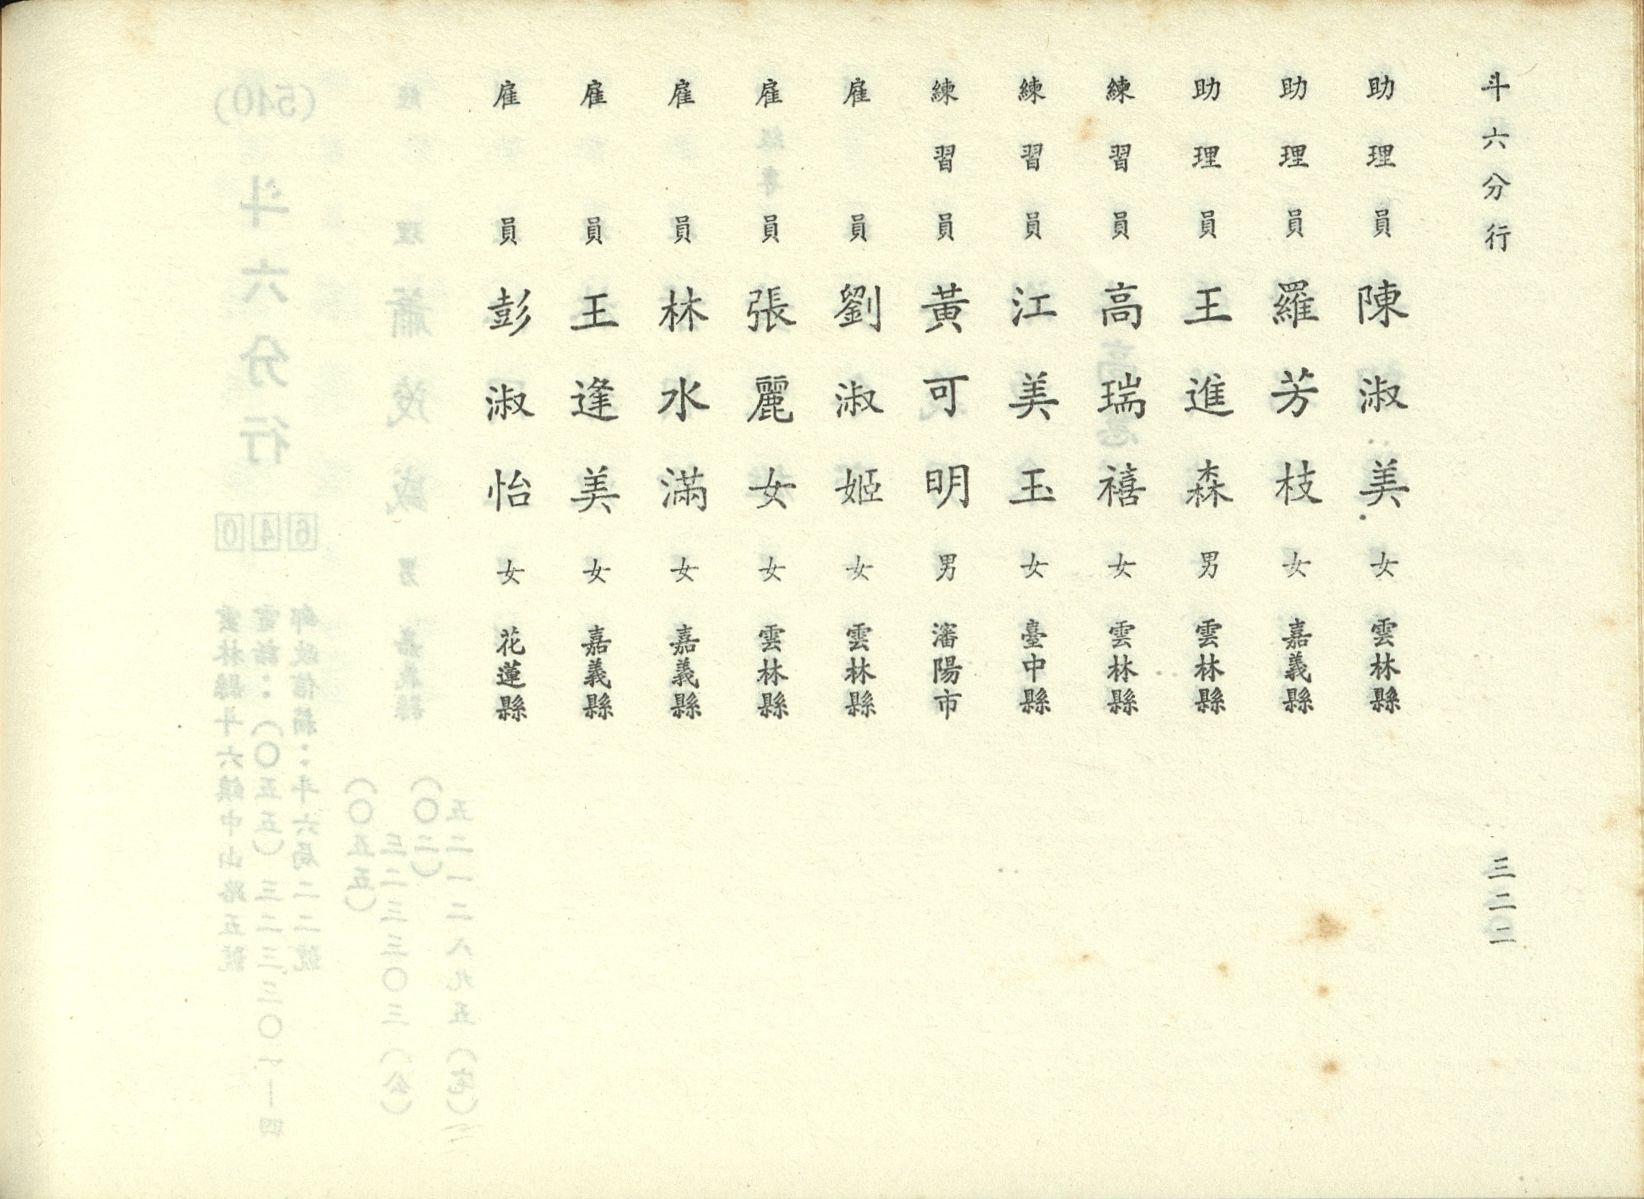 斗六分行
助理員 陳淑美 女 雲林縣
助理員 羅芳枝 女 嘉義縣
助理員 王進森 男 雲林縣
練習員 高瑞禧 女 雲林縣
練習員 江美玉 女 臺中縣
練習員 黃可明 男 瀋陽市
雇員 劉淑姬 女 雲林縣
雇員 張麗女 女 雲林縣
雇員 林水滿 女 嘉義縣
雇員 王逢美 女 嘉義縣
雇員 彭淑怡 女 花蓮縣
三二二